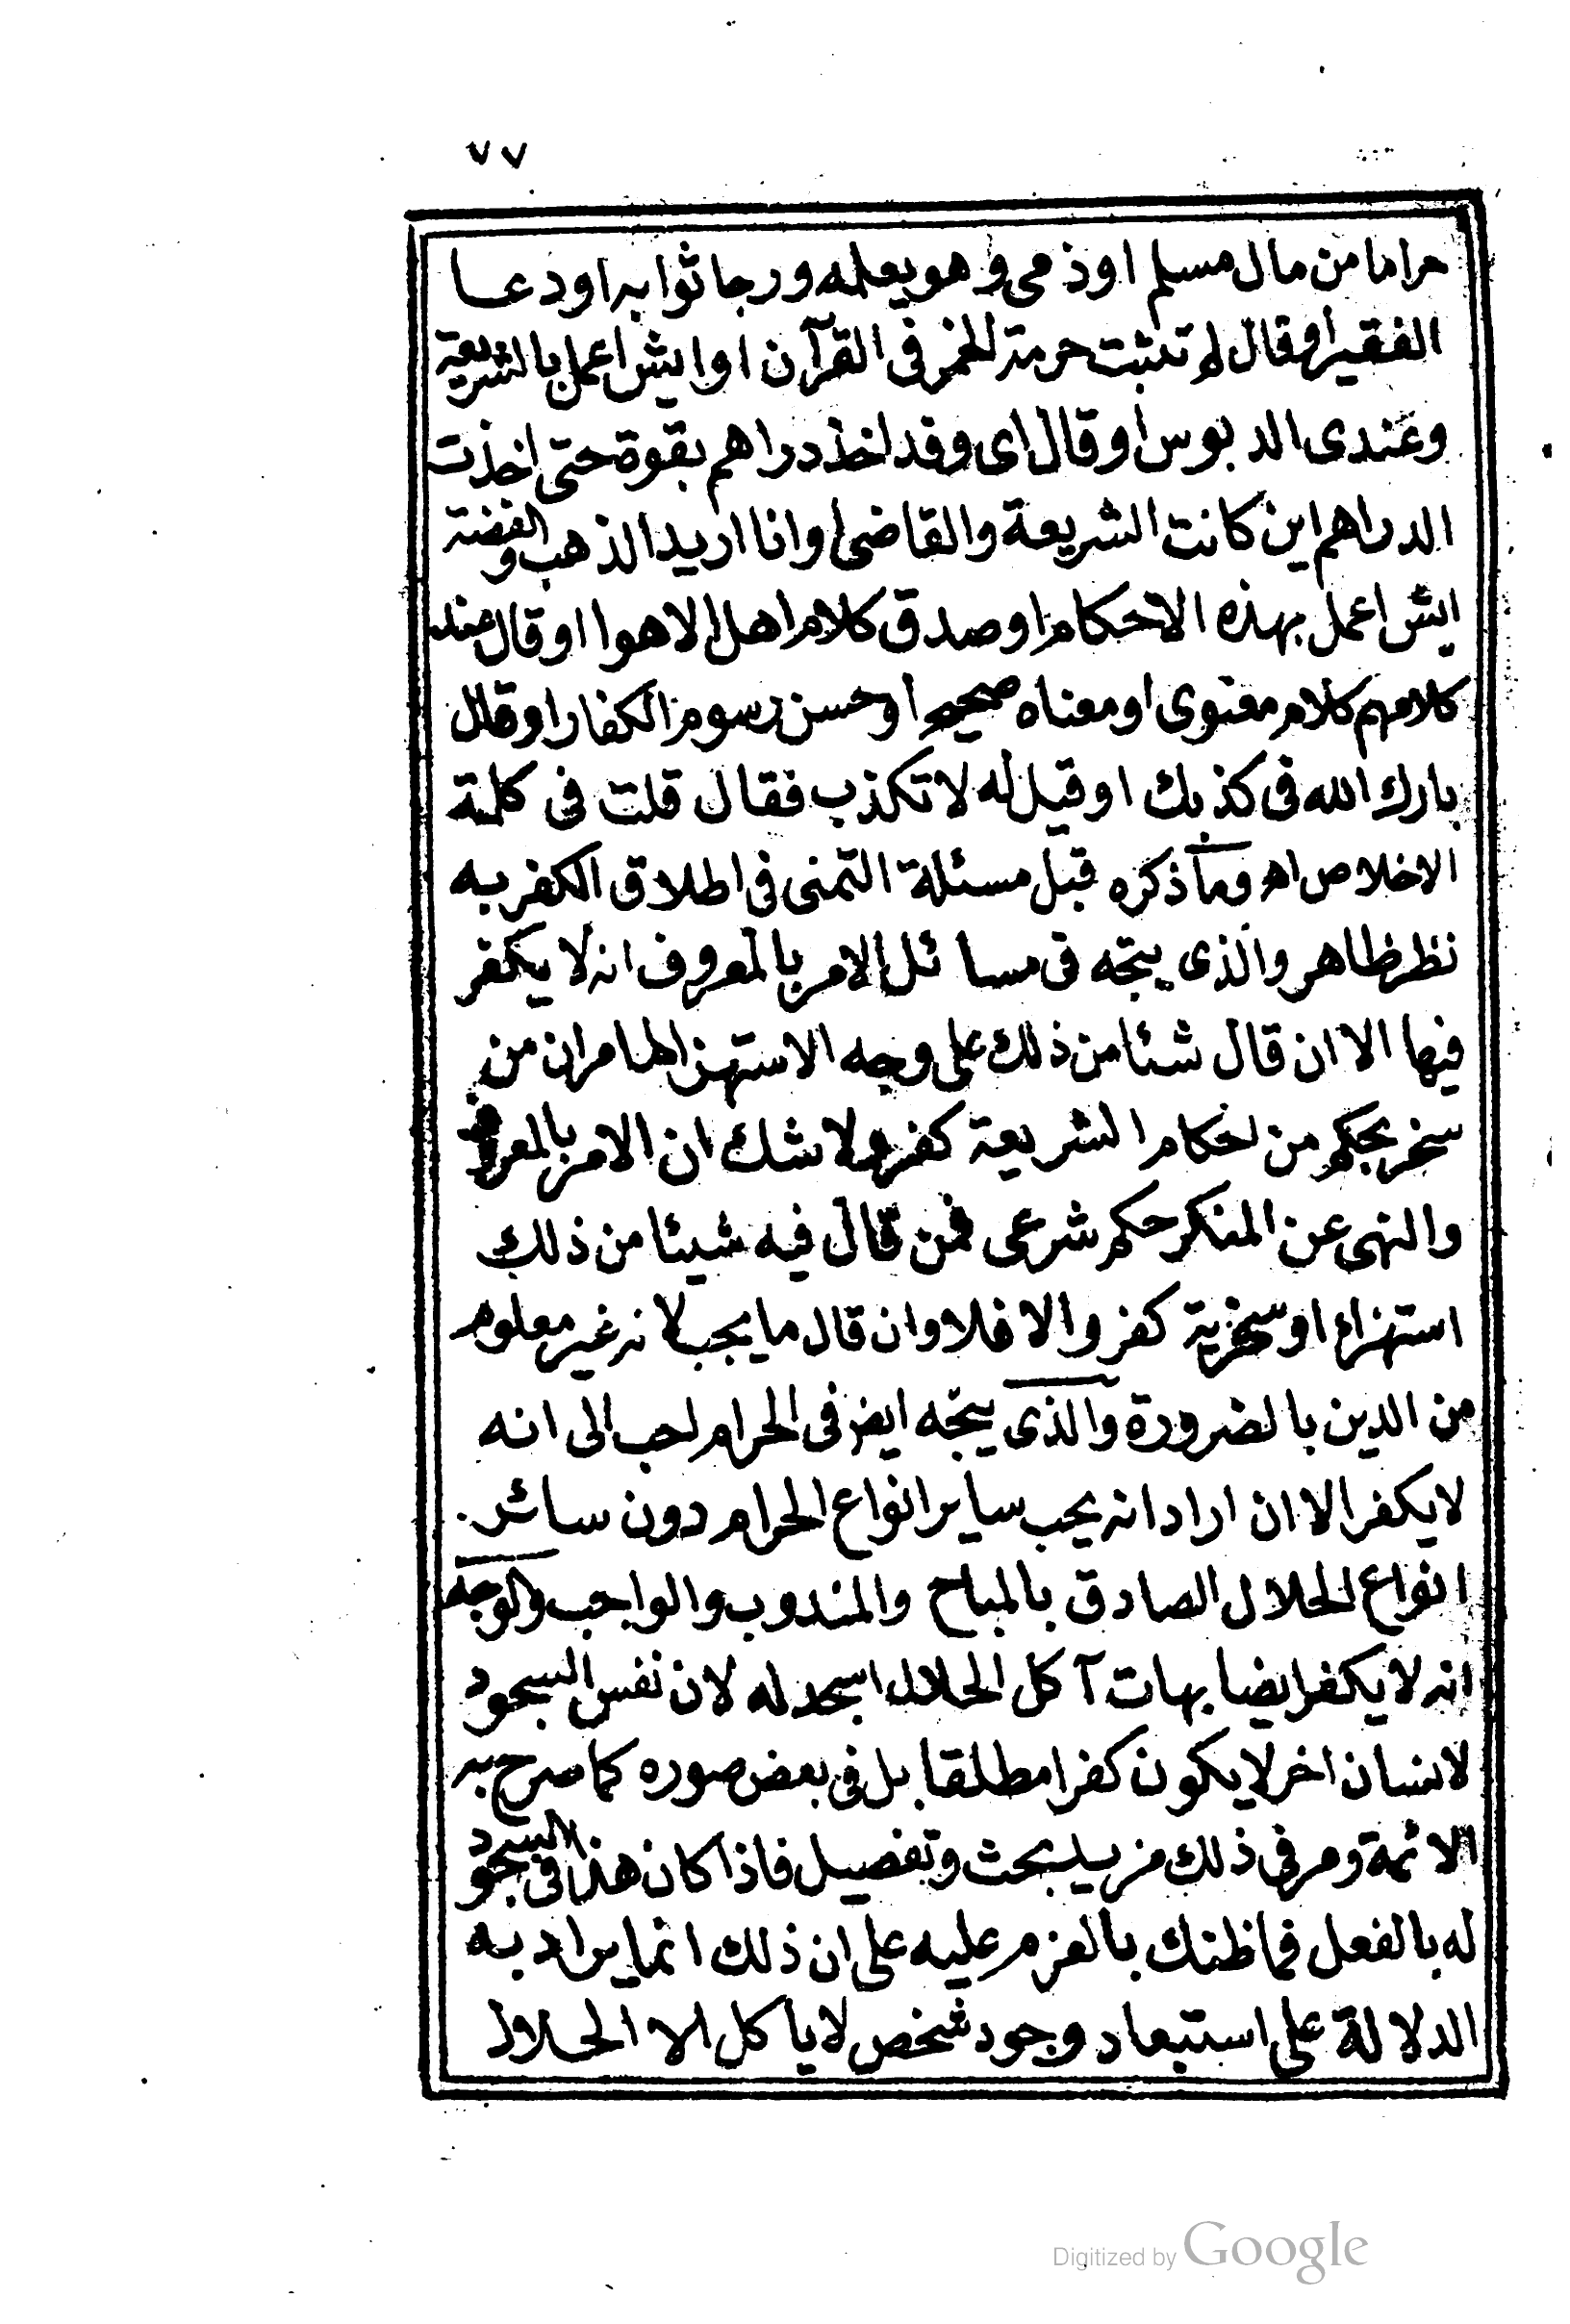 ٧٧
حراما من مال مسلم او ذمى وهو يعلمه ورجا ثوابه او دعا
الفقير او قال لم تثبت حرمة الخمر فى القرآن او ايش اعمل بالشريعة
وعندى الدبوس او قال اى وقد اخذ دراهم بقوة حتى اخذت
الدراهم اين كانت الشريعة والقاضى او انا اريد الذهب والفضة
ايش اعمل بهذه الاحكام او صدق كلام اهل الاهوا او قال عند
كلامهم كلام معنوى او معناه صحيح او حسن رسوم الكفار او قال
بارك الله فى كذبك او قيل له لا تكذب فقال قلت فى كلمة
الاخلاص اه وما ذكره قبل مسئلة التمنى فى اطلاق الكفر به
نظر ظاهر والذى يتجه فى مسائل الامر بالمعروف انه لا يكفر
فيها الا ان قال شئا من ذلك على وجه الاستهزا لما مر ان من
سخر بحكم من احكام الشريعة كفر ولا شك ان الامر بالمعروف
والنهى عن المنكر حكم شرعى فمن قال فيه شيئا من ذلك
استهزاء او سخرية كفر والا فلا وان قال ما يجب لانه غير معلوم
من الدين بالضرورة والذى يتجه ايض فى الحرام احب الى انه
لا يكفر الا ان اراد انه يحب ساير انواع الحرام دون سائر
انواع الحلال الصادق بالمباح والمندوب والواجب والوجه
انه لا يكفر ايضا بهات آكل الحلال اسجد له لان نفس السجود
لانسان اخر لا يكون كفرا مطلقا بل فى بعض صوره كما صرح به
الائمة ومر فى ذلك مزيد بحث وتفصيل فاذا كان هذا فى السجود
له بالفعل فما ظنك بالعزم عليه على ان ذلك انما يراد به
الدلالة على استبعاد وجود شخص لا ياكل الا الحلال
Digitized by Google